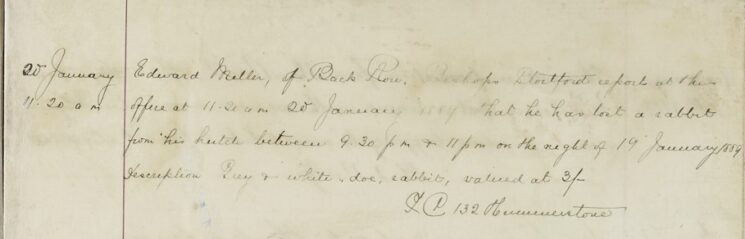 20 January Edward Miller, of Back Row, Bishops Stortford reports at the
11.20 a m office at 11.20 a m 20 January 1889 that he has lost a rabbit
from his hutch between 9.30 p m & 11 p m on the night of 19 January 1889
Description Grey & white, doe, rabbit, valued at 3/-
P C 132 Hummerstone